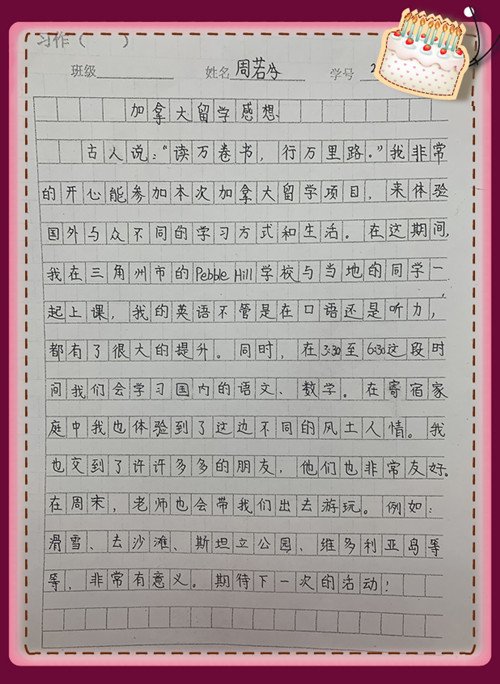 习作（ ）
班级 姓名 周若兮 学号 2
加拿大留学感想
古人说：“读万卷书，行万里路。”我非常
的开心能参加本次加拿大留学项目，来体验
国外与众不同的学习方式和生活。在这期间，
我在三角州市的Pebble Hill学校与当地的同学一
起上课，我的英语不管是在口语还是听力，
都有了很大的提升。同时，在3:30至6:30这段时
间我们会学习国内的语文、数学。在寄宿家
庭中我也体验到了这边不同的风土人情。我
也交到了许许多多的朋友，他们也非常友好。
在周末，老师也会带我们出去游玩。例如：
滑雪、去沙滩、斯坦立公园、维多利亚岛等
等，非常有意义。期待下一次的活动！